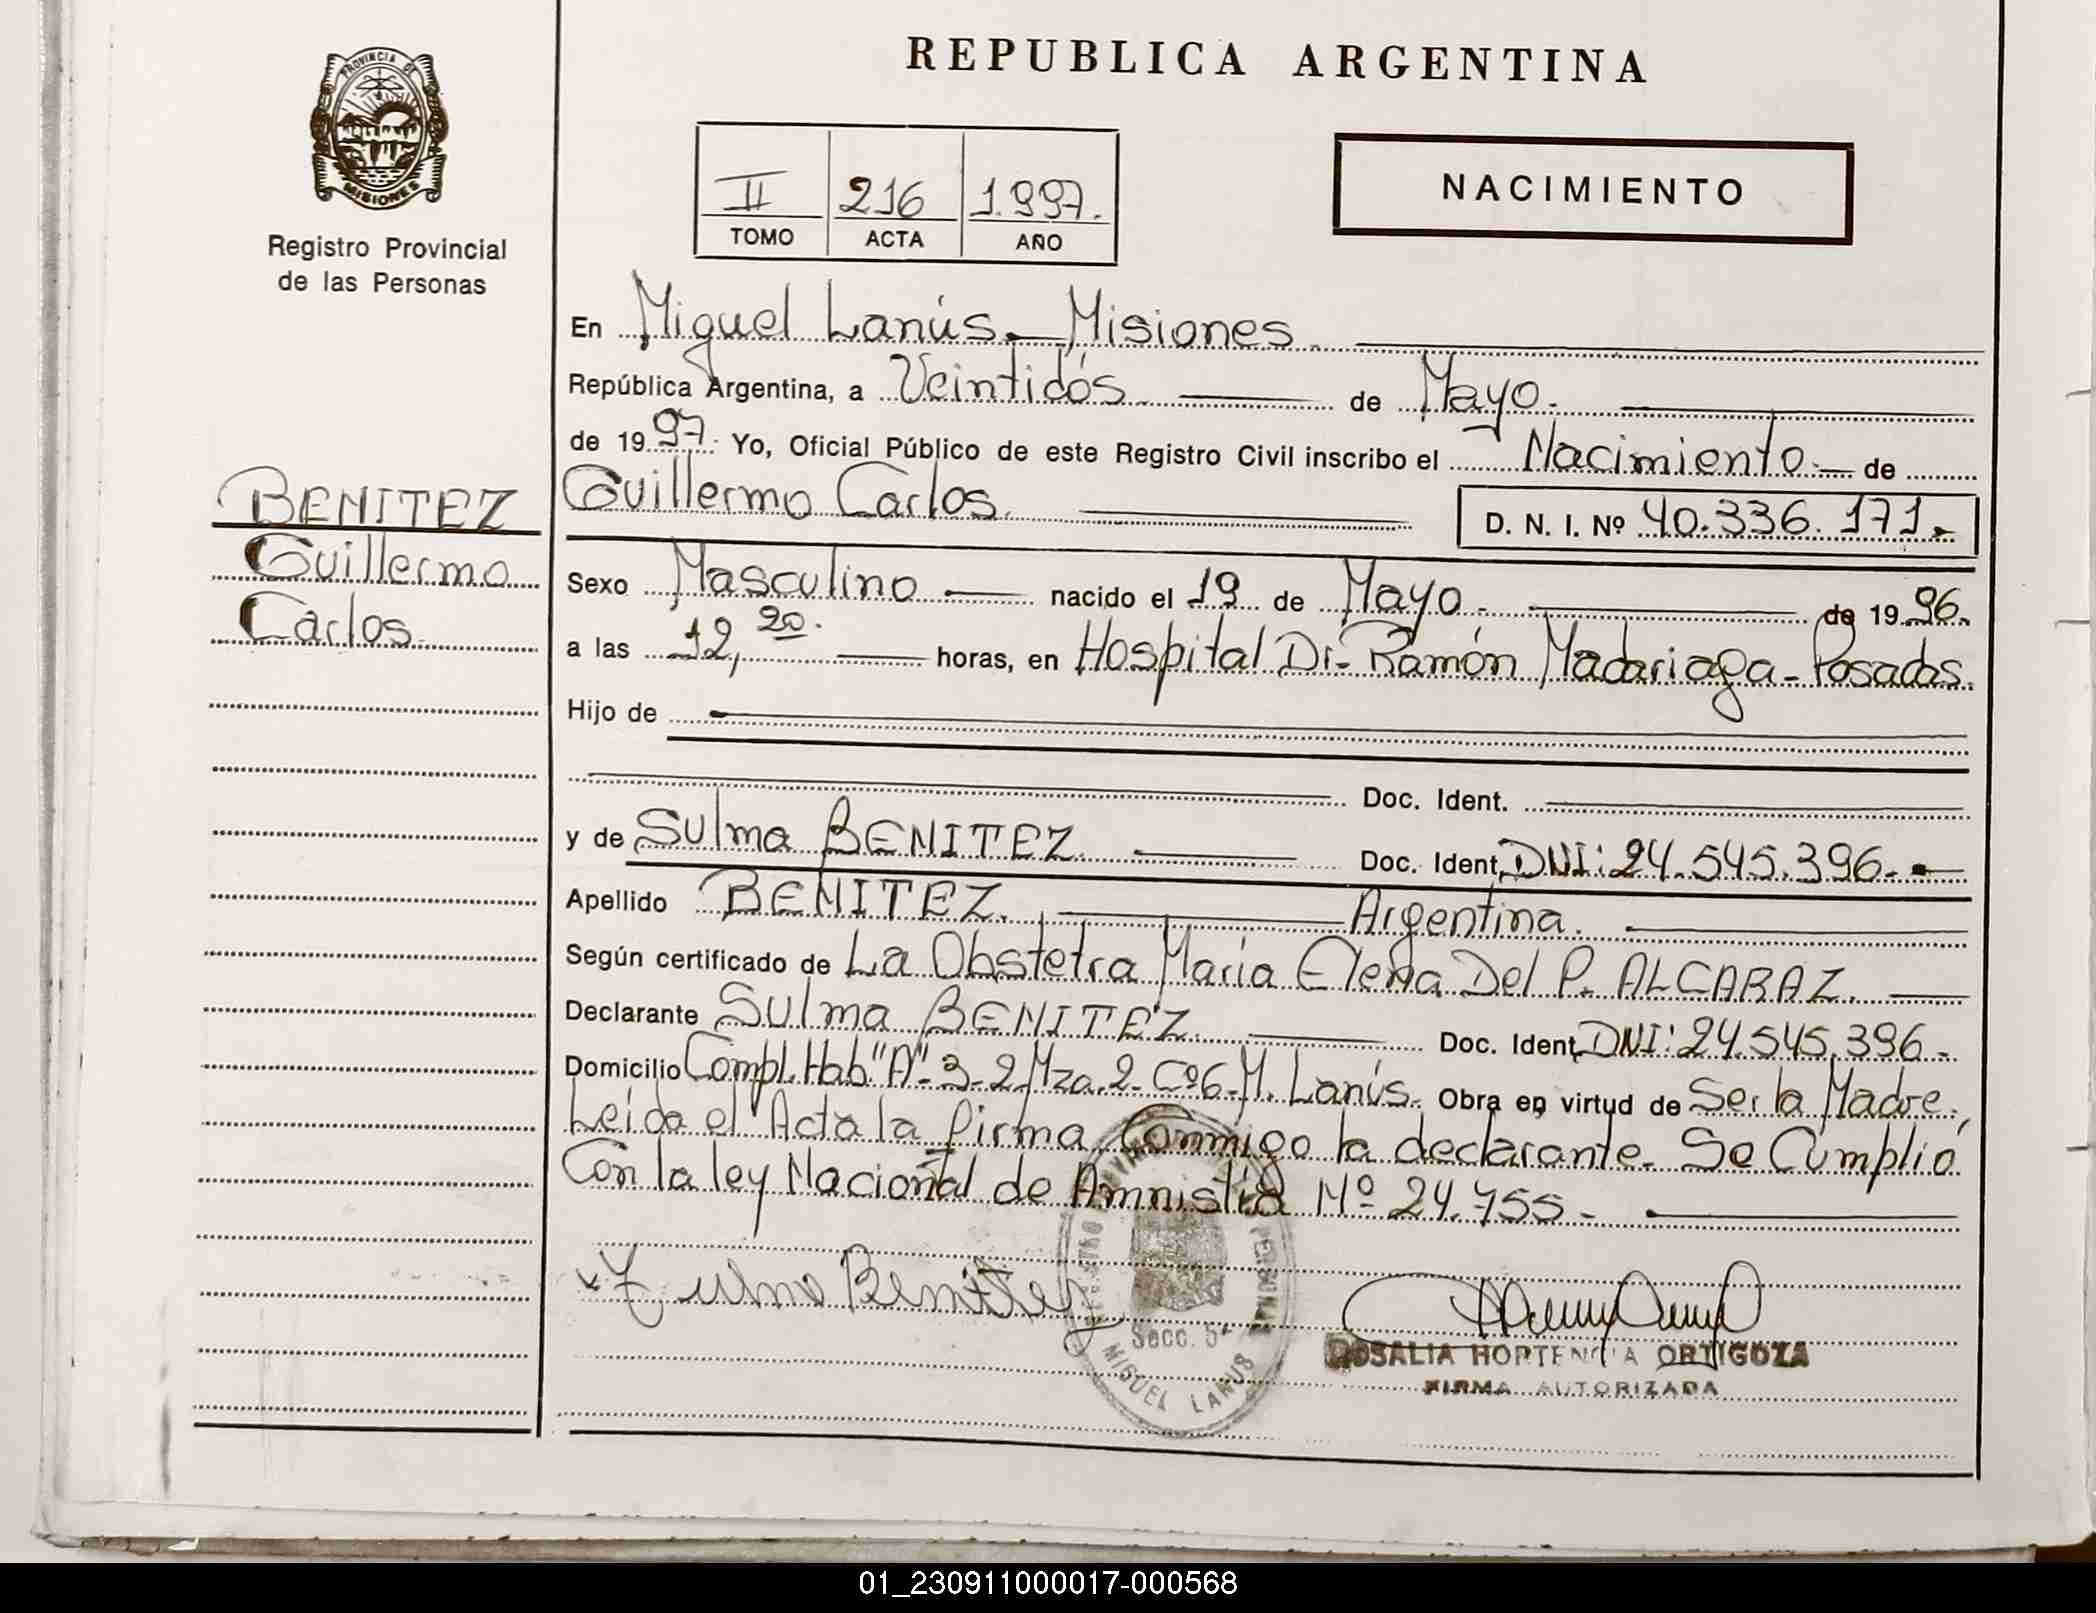 REPUBLICA ARGENTINA
PROVINCIA DE
MISIONES
Registro Provincial
de las Personas
II 216 1.997.
TOMO ACTA AÑO
NACIMIENTO
En Miguel Lanús - Misiones.
República Argentina, a Veintidós de Mayo.
de 1997. Yo, Oficial Público de este Registro Civil inscribo el Nacimiento de
BENITEZ
Guillermo
Carlos.
Guillermo Carlos. D. N. I. Nº 40.336.171.-
Sexo Masculino nacido el 19 de Mayo. de 1996.
a las 12,20. horas, en Hospital Dr. Ramón Madariaga - Posadas.
Hijo de
Doc. Ident.
y de Sulma BENITEZ. Doc. Ident. DNI: 24.545.396.-
Apellido BENITEZ. Argentina.
Según certificado de La Obstetra María Elena Del P. ALCARAZ.
Declarante Sulma BENITEZ. Doc. Ident. DNI: 24.545.396-
Domicilio Compl. Hab. "A"-3-2 Mza. 2- Cº6-M. Lanús. Obra en virtud de Ser la Madre.
Leída el Acta la firma Conmigo la declarante. Se Cumplió
Con la ley Nacional de Amnistía Nº 24.755-
Zulma Benitez
Secc. 5ª
MIGUEL LANUS
ROSALIA HORTENCIA ORTIGOZA
FIRMA AUTORIZADA
01_230911000017-000568